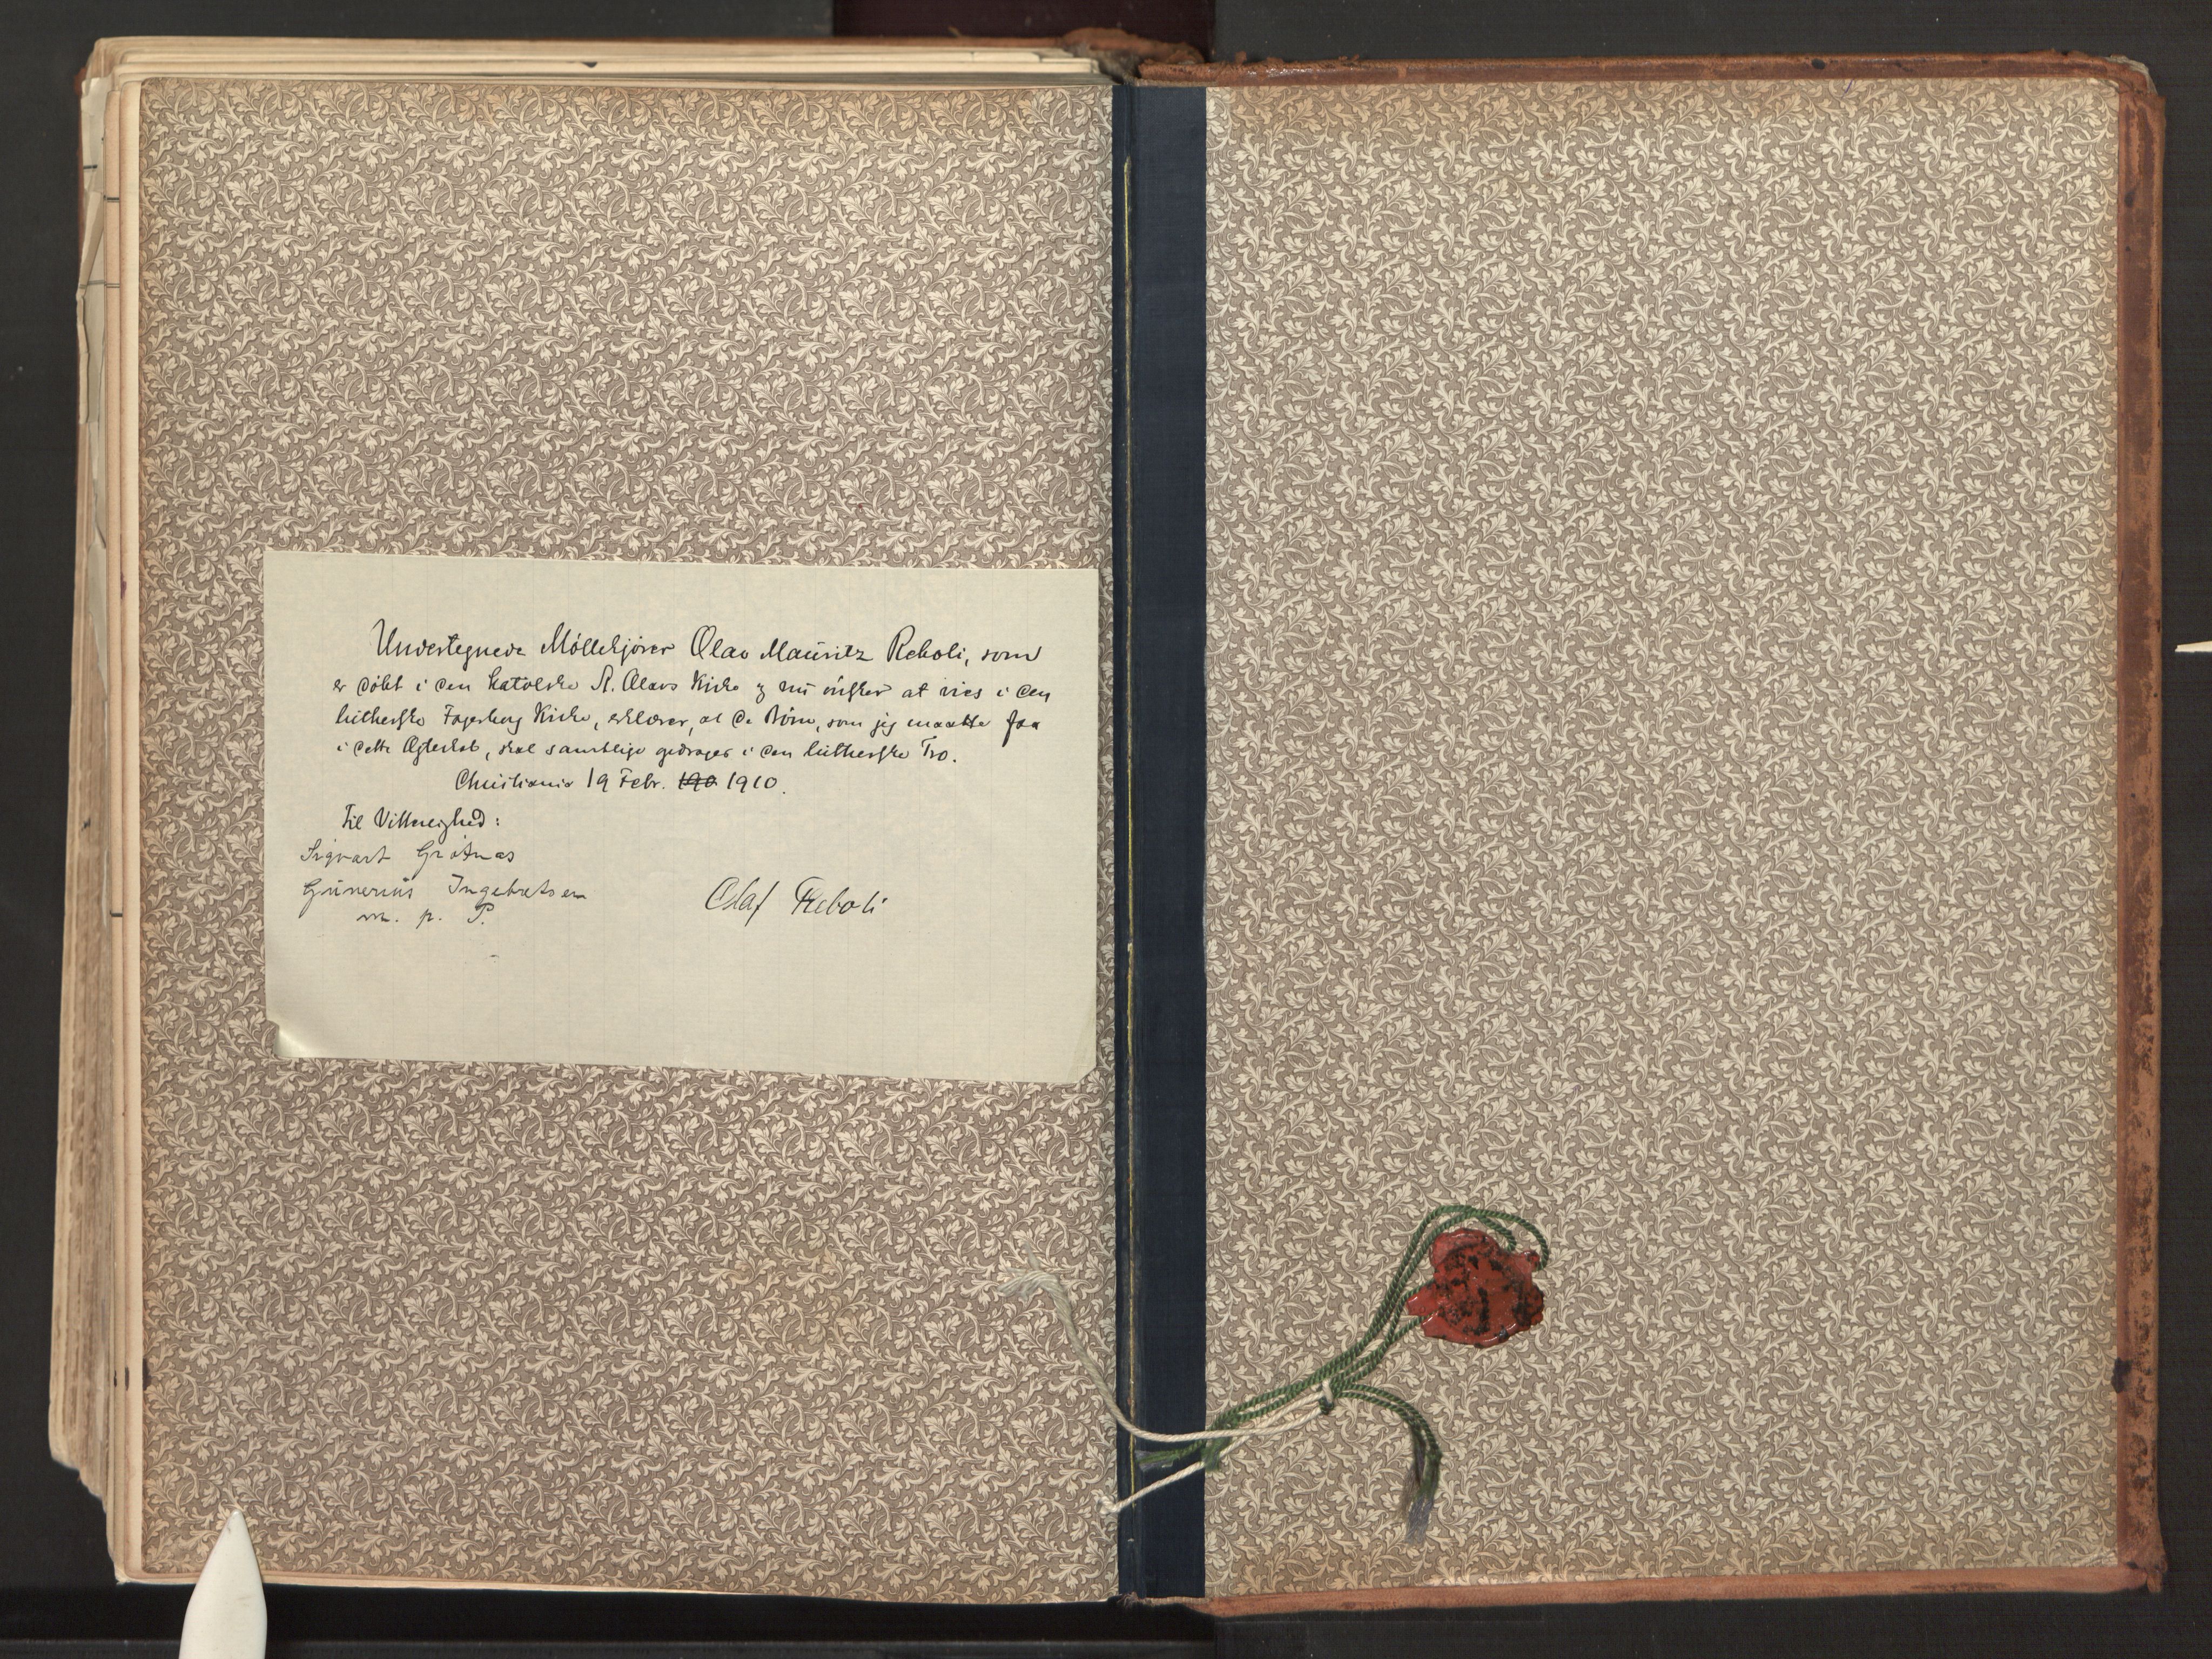 Undertegnede Møllekjører Olav Mauritz Reboli, som
er døbt i den katolske St. Olavs Kirke og nu ønsker at vies i den
lutherske Fagerborg Kirke, erklærer, at de Børn, som jeg maatte faa
i dette Ægteskab, skal samtlige opdrages i den lutherske Tro.
Christiania 19 Febr. 190 1910.
Til Vitterlighed:
Sigvart Grøtnæs
Gunerius Ingebretsen
m. p. P.
Olaf Reboli